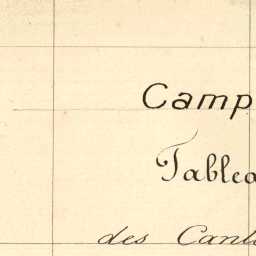 Camp
Tablea
des Cant